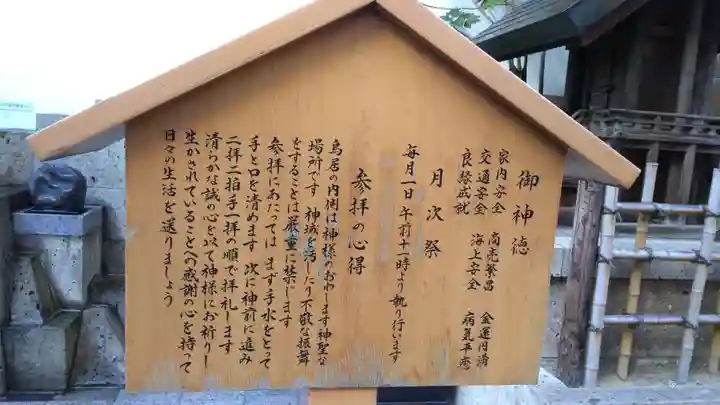 御神徳
家内安全 商売繁昌 金運円満
交通安全 海上安全 病気平癒
良縁成就
月次祭
毎月一日 午前十一時より執り行います
参拝の心得
鳥居の内側は神様のおわします神聖な
場所です 神域を汚したり不敬な振舞
をすることは厳重に禁じます
参拝にあたっては まず手水をとって
手と口を清めます 次に神前に進み
二拝二拍手一拝の順で拝礼します
清らかな誠の心を以て神様にお祈りし
生かされていることへの感謝の心を持って
日々の生活を送りましょう